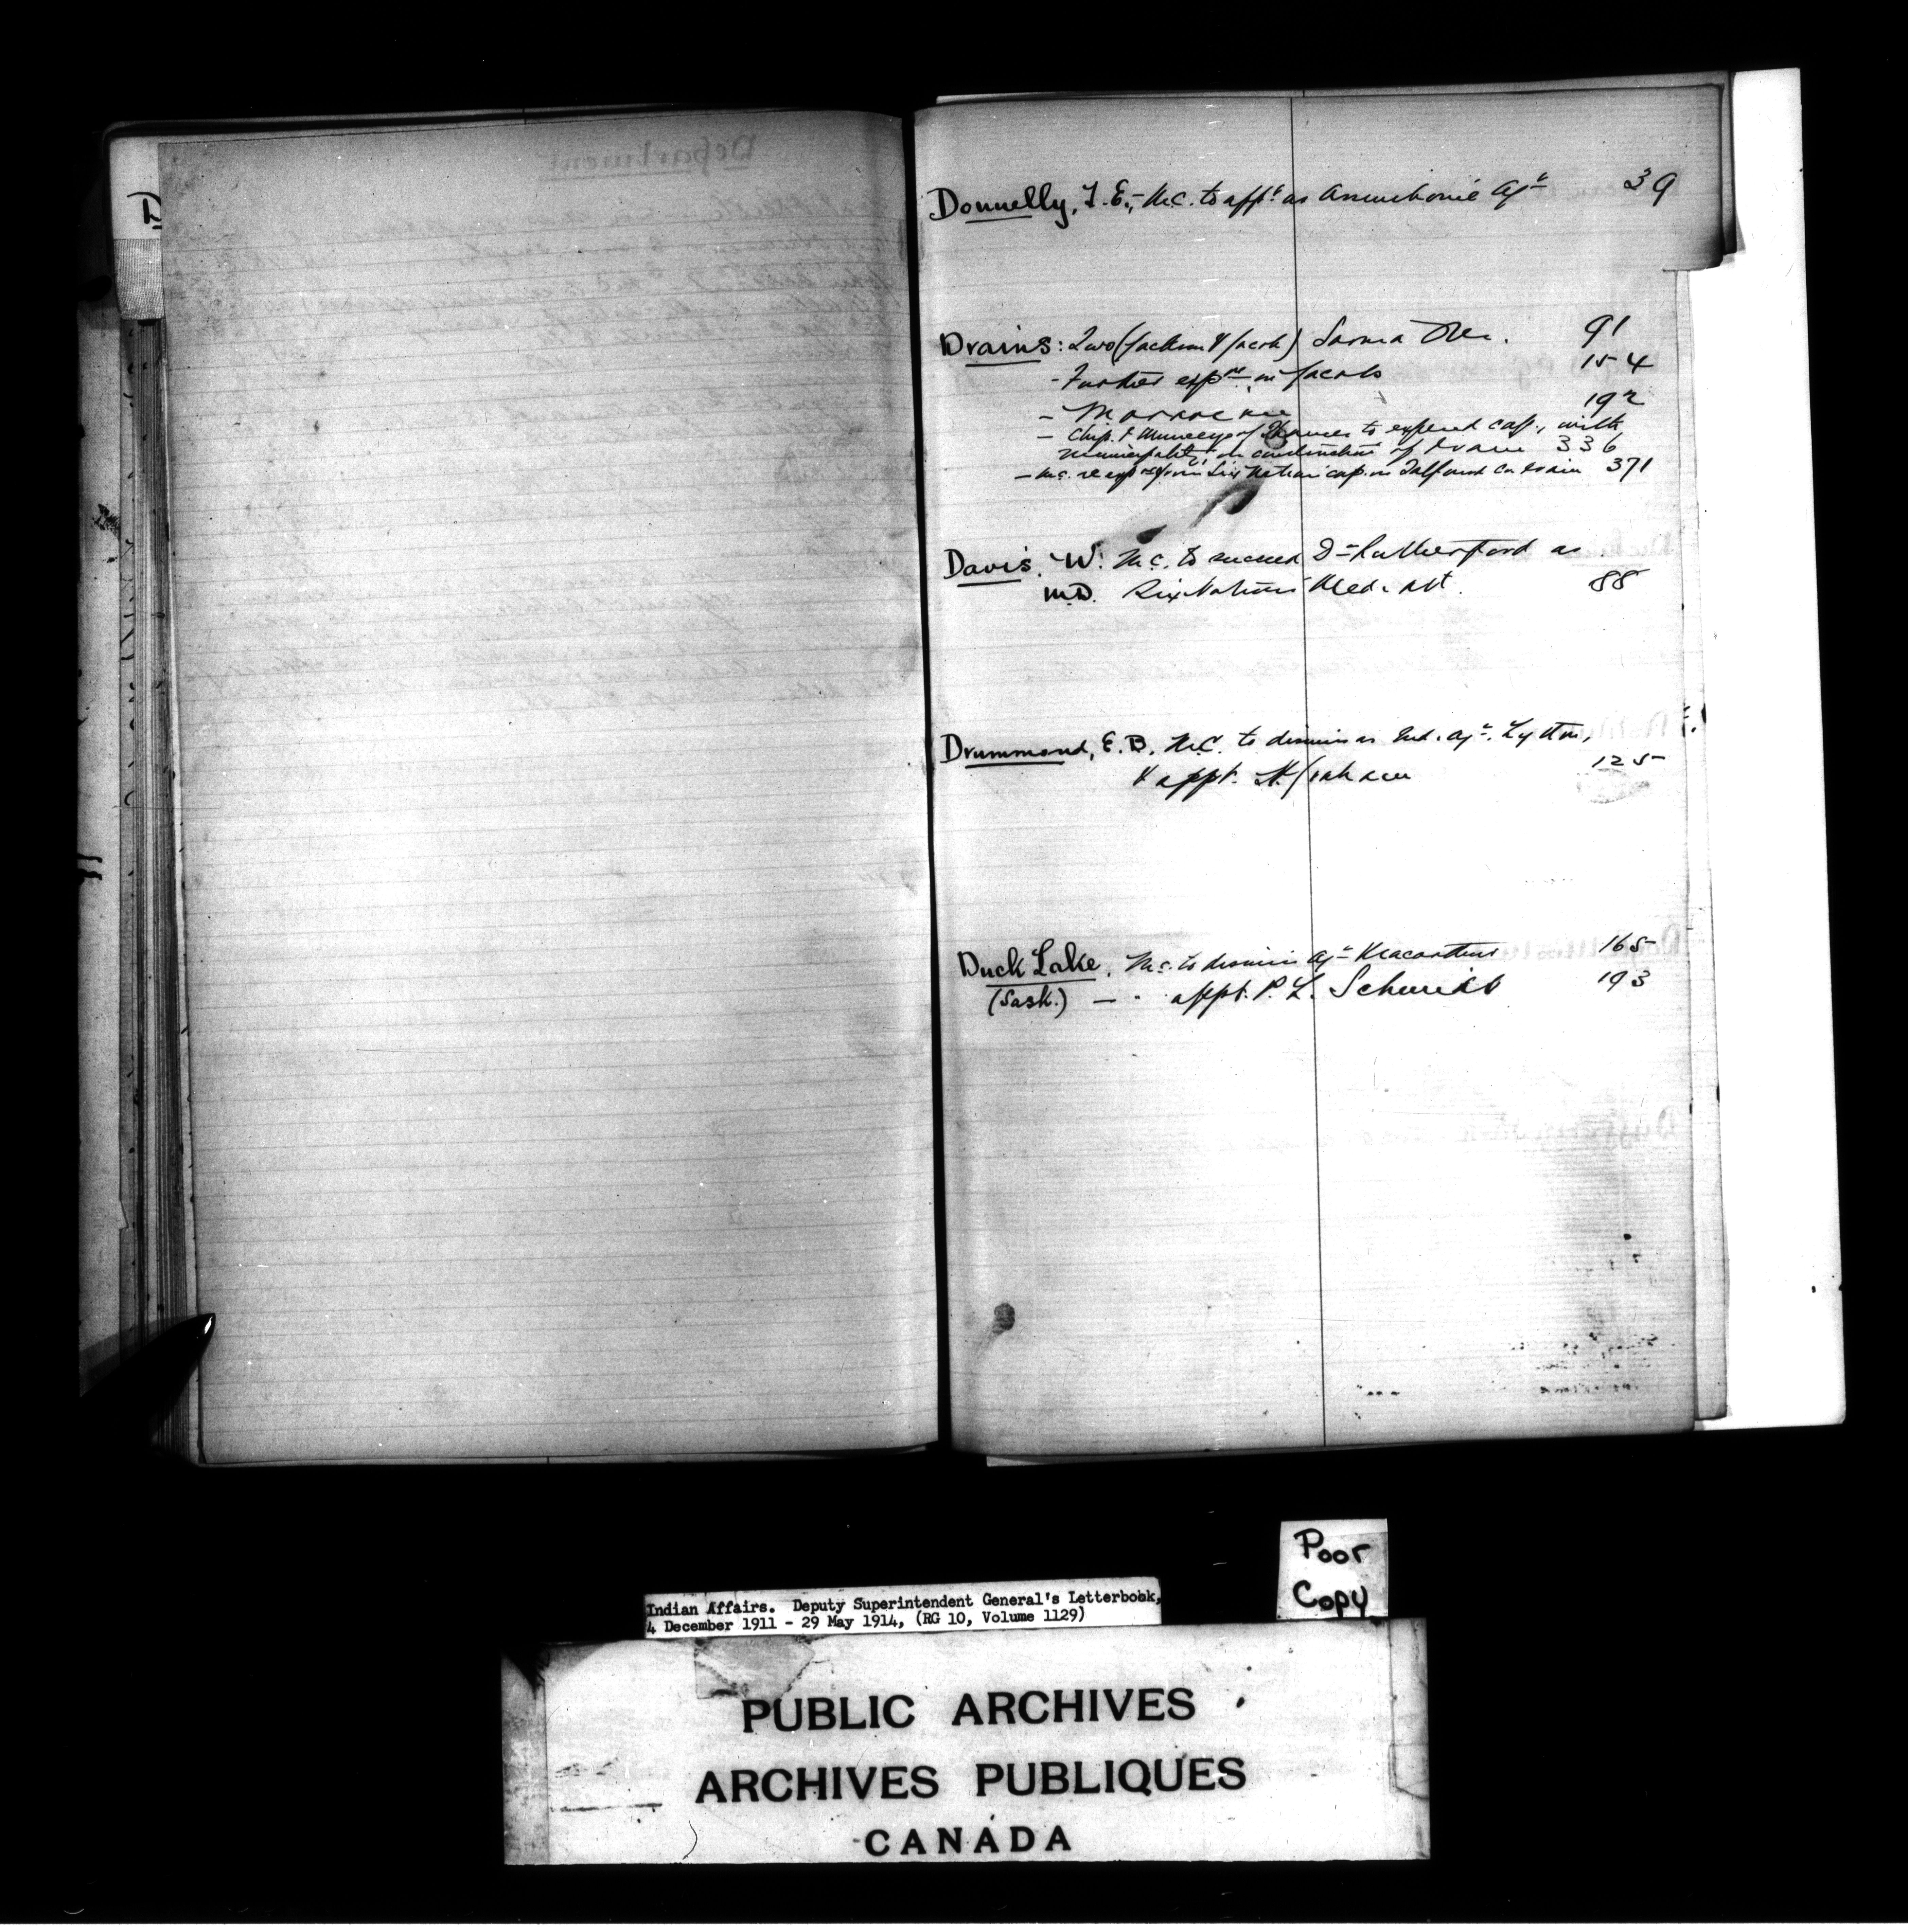 D
Department
Donnelly, T. E., M.C. to appt. as Assiniboine Agt 39
Drains: Two (Jackson & Jacob) Sarnia Res. 91
- Further exp re on Jacobs 154
- 192
- Chip. & Munceys of Thames to expend cap., with
municipality, on construction of drain 336
- M.C. re exp re from Six Nation cap. on drain 371
Davis, W. M.C. to succeed Dr Rutherford as
M.D. Six Nations Med. Att. 88
Drummond, E. B. M.C. to dismiss as Ind. Agt. Lytton,
& appt. H. Graham 125
Duck Lake, M.C. to dismiss Agt Macarthur 165
(Sask.) — " appt. P. L. Schmidt 193
Poor
Copy
Indian Affairs. Deputy Superintendent General's Letterbook,
4 December 1911 - 29 May 1914, (RG 10, Volume 1129)
PUBLIC ARCHIVES
ARCHIVES PUBLIQUES
CANADA